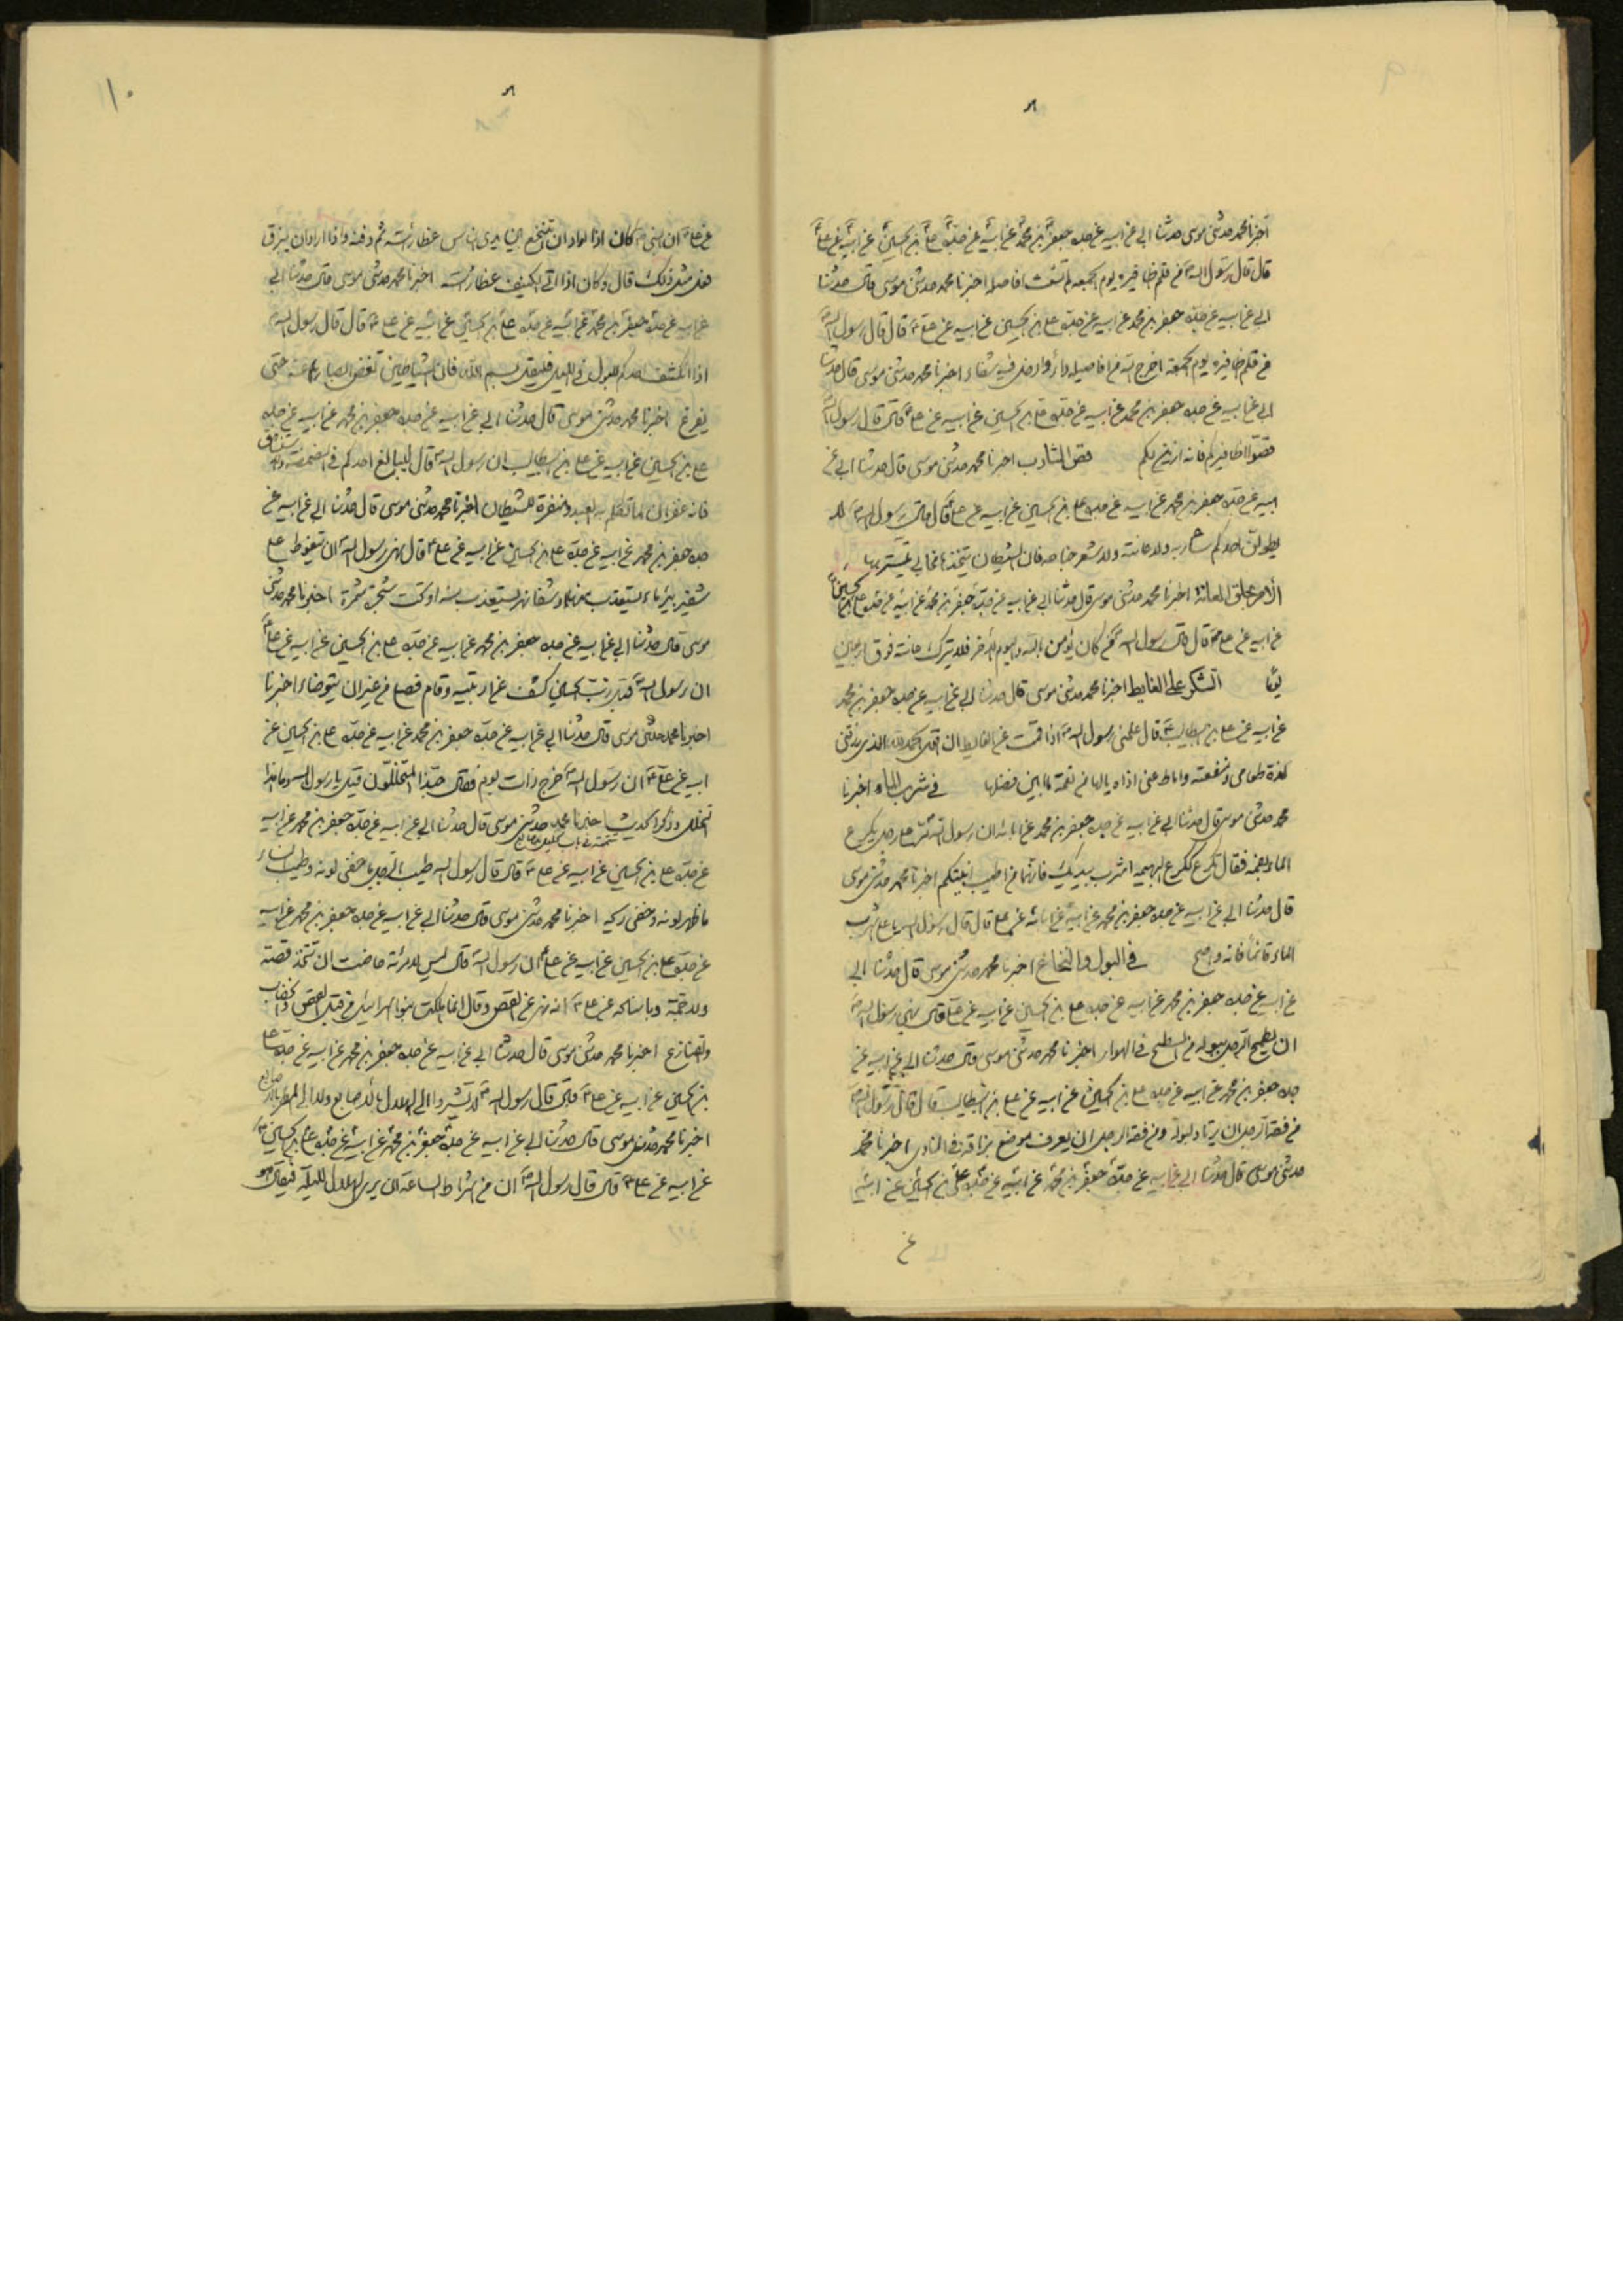 اخبرنا محمد حدثنی موسی حدثنا ابی عن ابیه عن جده جعفر بن محمد عن ابیه عن جده علی بن الحسین عن ابیه عن علی
قال قال رسول الله من قلم اظافیره یوم الجمعه لم تشعث انامله اخبرنا محمد حدثنی موسی قال حدثنا
ابی عن ابیه عن جده جعفر بن محمد عن ابیه عن جده علی بن الحسین عن ابیه عن علی قال قال رسول الله
من قلم اظافیره یوم الجمعة اخرج الله من انامله داء وادخل فیه شفاء اخبرنا محمد حدثنی موسی قال حدثنا
ابی عن ابیه عن جده جعفر بن محمد عن ابیه عن جده علی بن الحسین عن ابیه عن علی قال قال رسول الله
قصوا اظافیرکم فانه ازین لکم قص الشارب اخبرنا محمد حدثنی موسی قال حدثنا ابی عن
ابیه عن جده جعفر بن محمد عن ابیه عن جده علی بن الحسین عن ابیه عن علی قال قال رسول الله لا
یطولن احدکم شاربه ولا عانته ولا شعر جناحه فان الشیطان یتخذها مخابی یستتر بها
الأمر بحلق العانة اخبرنا محمد حدثنی موسی قال حدثنا ابی عن ابیه عن جده جعفر بن محمد عن ابیه عن جده علی بن الحسین
عن ابیه عن علی قال قال رسول الله من کان یؤمن بالله والیوم الآخر فلا یترک عانته فوق اربعین
یومًا الشکر علی الغایط اخبرنا محمد حدثنی موسی قال حدثنا ابی عن ابیه عن جده جعفر بن محمد
عن ابیه عن علی بن ابیطالب قال علمنی رسول الله اذا قمت عن الغایط ان اقول الحمد لله الذی رزقنی
لذة طعامی ومنفعته واماط عنی اذاه یا لها من نعمة ما ابین فضلها فی شرب الماء اخبرنا
محمد حدثنی موسی قال حدثنا ابی عن ابیه عن جده جعفر بن محمد عن ابائه ان رسول الله مر علی رجل یکرع
الماء بفمه فقال تکرع ککرع البهیمه اشرب بیدیک فانهما من اطیب انیتکم اخبرنا محمد حدثنی موسی
قال حدثنا ابی عن ابیه عن جده جعفر بن محمد عن ابیه عن ابائه عن علی قال قال رسول الله یا علی اشرب
الماء قائما فانه واصح فی البول والنخاع اخبرنا محمد حدثنی موسی قال حدثنا ابی
عن ابیه عن جده جعفر بن محمد عن ابیه عن جده علی بن الحسین عن ابیه عن علی قال نهی رسول الله
ان یطمح الرجل ببوله من السطح فی الهواء اخبرنا محمد حدثنی موسی قال حدثنا ابی عن ابیه عن
جده جعفر بن محمد عن ابیه عن جده علی بن الحسین عن ابیه عن علی بن ابیطالب قال قال رسول الله
من فقه الرجل ان یرتاد لبوله ومن فقه الرجل ان یعرف موضع بزاقه فی النادی اخبرنا محمد
حدثنی موسی قال حدثنا ابی عن ابیه عن جده جعفر بن محمد عن ابیه عن جده علی بن الحسین عن ابیه
عن
۱۰
عن علی ان النبی کان اذا اراد ان یتنخع بین یدی الناس غطا رأسه ثم دفنه واذا اراد ان یبزق
فعل مثل ذلک قال وکان اذا اتی الکنیف غطا رأسه اخبرنا محمد حدثنی موسی قال حدثنا ابی
عن ابیه عن جده جعفر بن محمد عن ابیه عن جده علی بن الحسین عن ابیه عن علی قال قال رسول الله
اذا انکشف احدکم للبول فی اللیل فلیقل بسم الله فان الشیاطین تغض ابصارها عنه حتی
یفرغ اخبرنا محمد حدثنی موسی قال حدثنا ابی عن ابیه عن جده جعفر بن محمد عن ابیه عن جده
علی بن الحسین عن ابیه عن علی بن ابیطالب ان رسول الله قال لیبالغ احدکم فی المضمضة والاستنشاق
فانه غفران لما تکلم به العبد ومنفرة للشیطان اخبرنا محمد حدثنی موسی قال حدثنا ابی عن ابیه عن
جده جعفر بن محمد عن ابیه عن جده علی بن الحسین عن ابیه عن علی قال نهی رسول الله ان یتغوط علی
شفیر بئر ماء یستعذب منها او شفا نهر یستعذب منه او تحت شجرة مثمرة اخبرنا محمد حدثنی
موسی قال حدثنا ابی عن ابیه عن جده جعفر بن محمد عن ابیه عن جده علی بن الحسین عن ابیه عن علی
ان رسول الله قبل زبیب الحسین کشف عن اربیته وقام فصلی من غیر ان یتوضاء اخبرنا
اخبرنا محمد حدثنی موسی قال حدثنا ابی عن ابیه عن جده جعفر بن محمد عن ابیه عن جده علی بن الحسین عن
ابیه عن علی ان رسول الله خرج ذات یوم فقال حبذا المتخللون قیل یا رسول الله وما هذا
التخلل وذکر الحدیث اخبرنا محمد حدثنی موسی قال حدثنا ابی عن ابیه عن جده جعفر بن محمد عن ابیه
عن جده علی بن الحسین عن ابیه عن علی قال قال رسول الله طیب الرجل ما خفی لونه وطیب النساء
ما ظهر لونه وخفی ریحه اخبرنا محمد حدثنی موسی قال حدثنا ابی عن ابیه عن جده جعفر بن محمد عن ابیه
عن جده علی بن الحسین عن ابیه عن علی ان رسول الله قال لیس لامرئة حاضت ان تتخذ قصة
ولا جمة وباسناده عن علی انه نهی عن القصص وقال انما هلکت بنو اسرائیل من قبل القصص والخضاب
والقنازع اخبرنا محمد حدثنی موسی قال حدثنا ابی عن ابیه عن جده جعفر بن محمد عن ابیه عن جده علی
بن الحسین عن ابیه عن علی قال قال رسول الله لا تشیروا الی الهلال بالاصابع ولا الی المطر بالاصابع
اخبرنا محمد حدثنی موسی قال حدثنا ابی عن ابیه عن جده جعفر بن محمد عن ابیه عن جده علی بن الحسین
عن ابیه عن علی قال قال رسول الله ان من اشراط الساعة ان یری الهلال للیلة فیقال هو